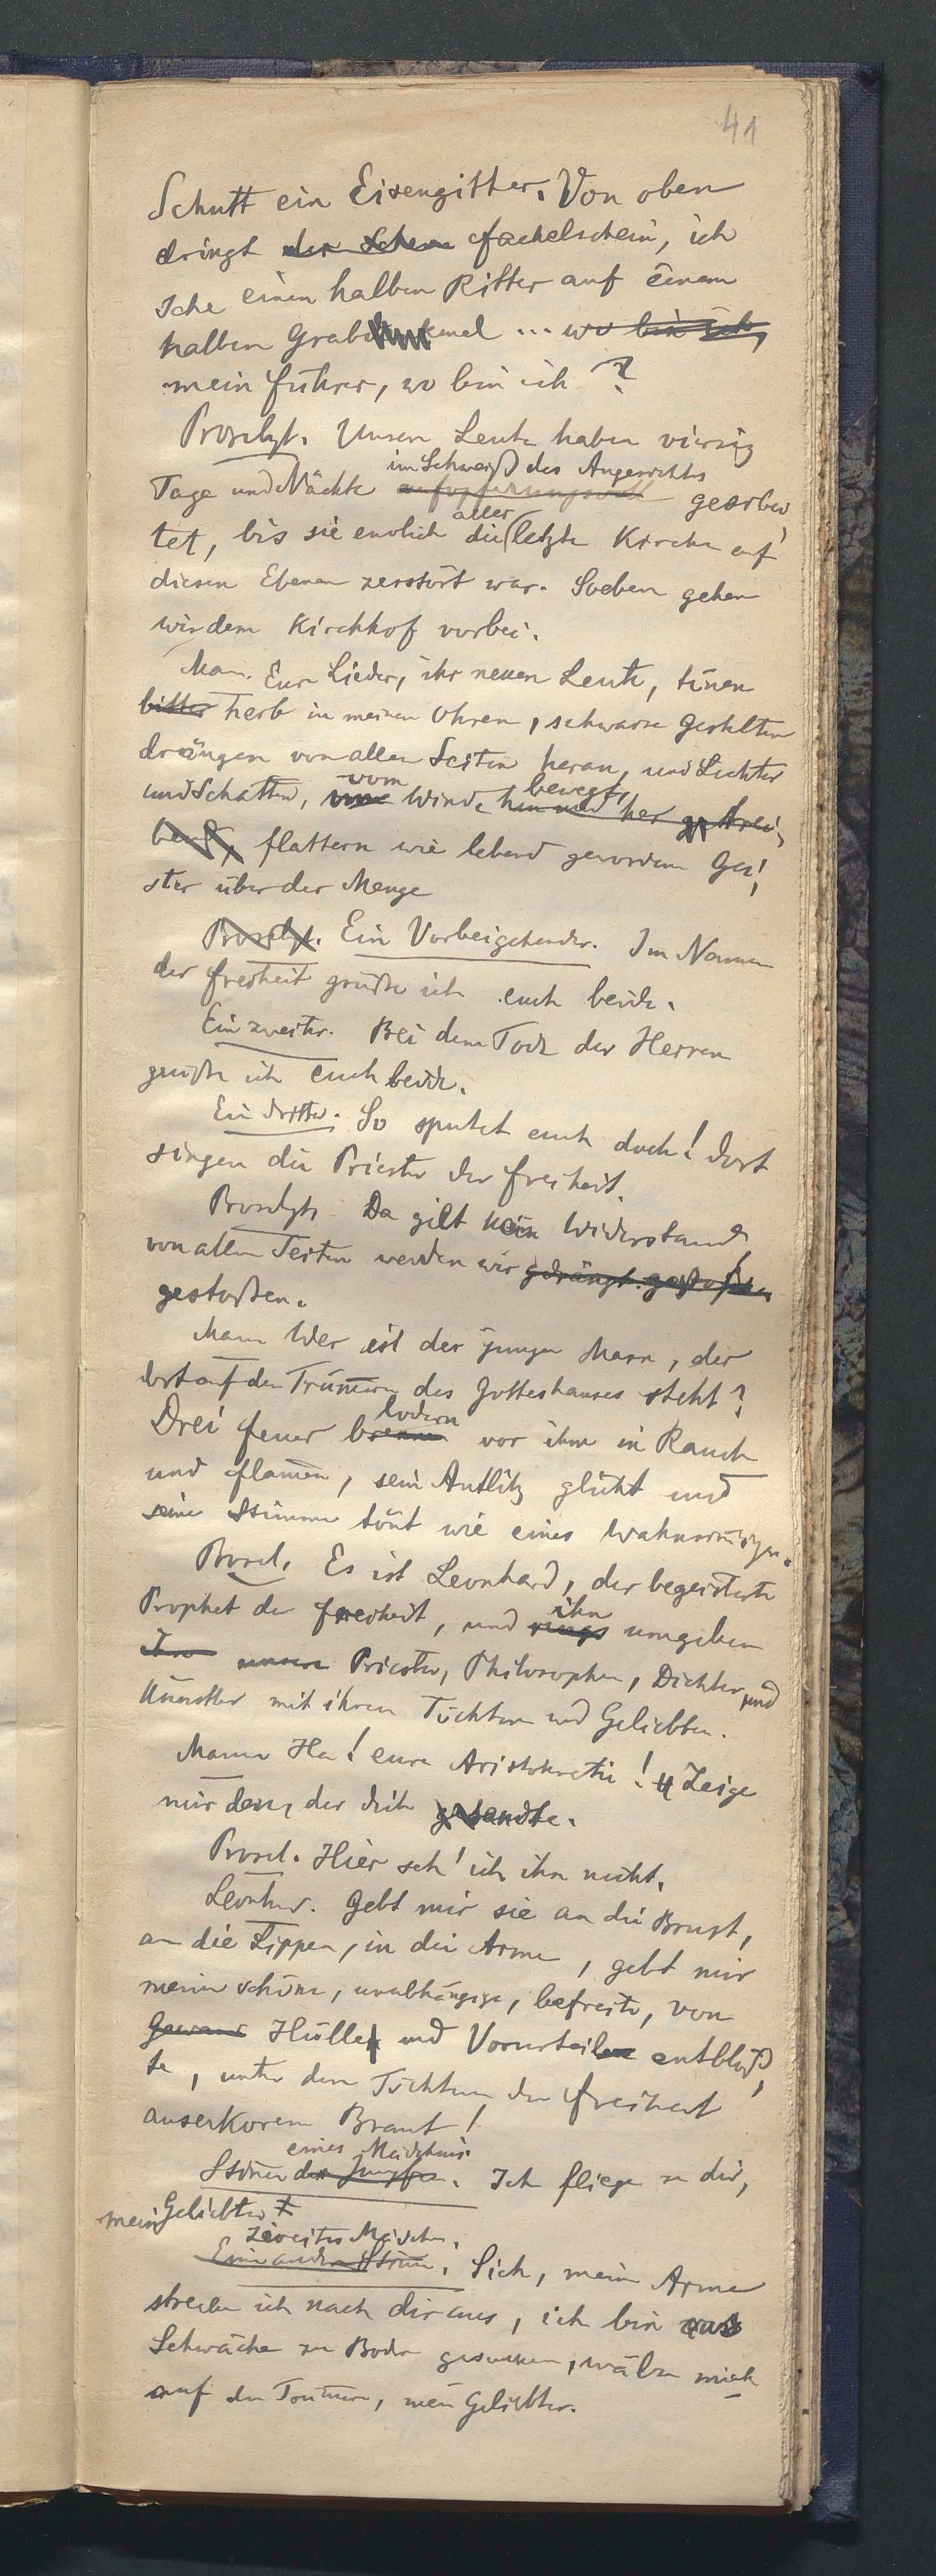 41
Schutt ein Eisengitter. Von oben
dringt der Schein Fackelschein, ich
sehe einen halben Ritter auf einem
halben Grabdenkmal ... wo bin ich,
mein Führer, wo bin ich?
Proselyt. Unsere Leute haben vierzig
im Schweiß des Angesichts
Tage und Nächte aufopferungsvoll gearbei
aller
tet, bis sie endlich die letzte Kirche auf
diesen Ebenen zerstört war. Soeben gehen
wir dem Kirchhof vorbei.
Man. Eure Lieder, ihr neuen Leute, tönen
bitter herb in meinen Ohren, schwarze Gestalten
drängen von allen Seiten heran, und Lichter
vom bewegt,
und Schatten, Winde hin und her getrei
bend, flattern wie lebend gewordene Gei
ster über der Menge
Proselyt. Ein Vorbeigehender. Im Namen
der Freiheit grüße ich euch beide.
Ein zweiter. Bei dem Tode der Herren
grüße ich euch beide.
Ein dritter. So sputet euch doch! Dort
singen die Priester der Freiheit.
Proselyt. Da gilt kein Widerstand,
von allen Seiten werden wir gedrängt. gestoßen.
gestoßen.
Mann Wer ist der junge Mann, der
dort auf den Trümern des Gotteshauses steht?
lodern
Drei Feuer brennen vor ihm in Rauch
und Flamen, sein Antlitz glüht und
seine Stimme tönt wie eines Wahnsinnigen.
Prosel. Es ist Leonhard, der begeisterte
ihn
Prophet der Freiheit, und rings umgeben
ihn unsere Priester, Philosophen, Dichter und
Künstler mit ihren Töchtern und Geliebten.
Mann Ha! eure Aristokratie! Zeige
mir den, der dich sandte.
Prosel. Hier seh' ich ihn nicht.
Leonhar. Gebt mir sie an die Brust,
an die Lippen, in die Arme, gebt mir
meine schöne, unabhängige, befreite, von
Gewand Hülle und Vorurteilen entblöß
te, unter den Töchtern der Freiheit
auserkorene Braut!
eines Mädchens.
Stime der Jungfer. Ich fliege zu dir,
mein Geliebter
zweites Mädchen.
Eine andere Stime. Sieh, meine Arme
strecke ich nach dir aus, ich bin aus
Schwäche zu Boden gesunken, wälze mich
auf den Trümern, mein Geliebter.